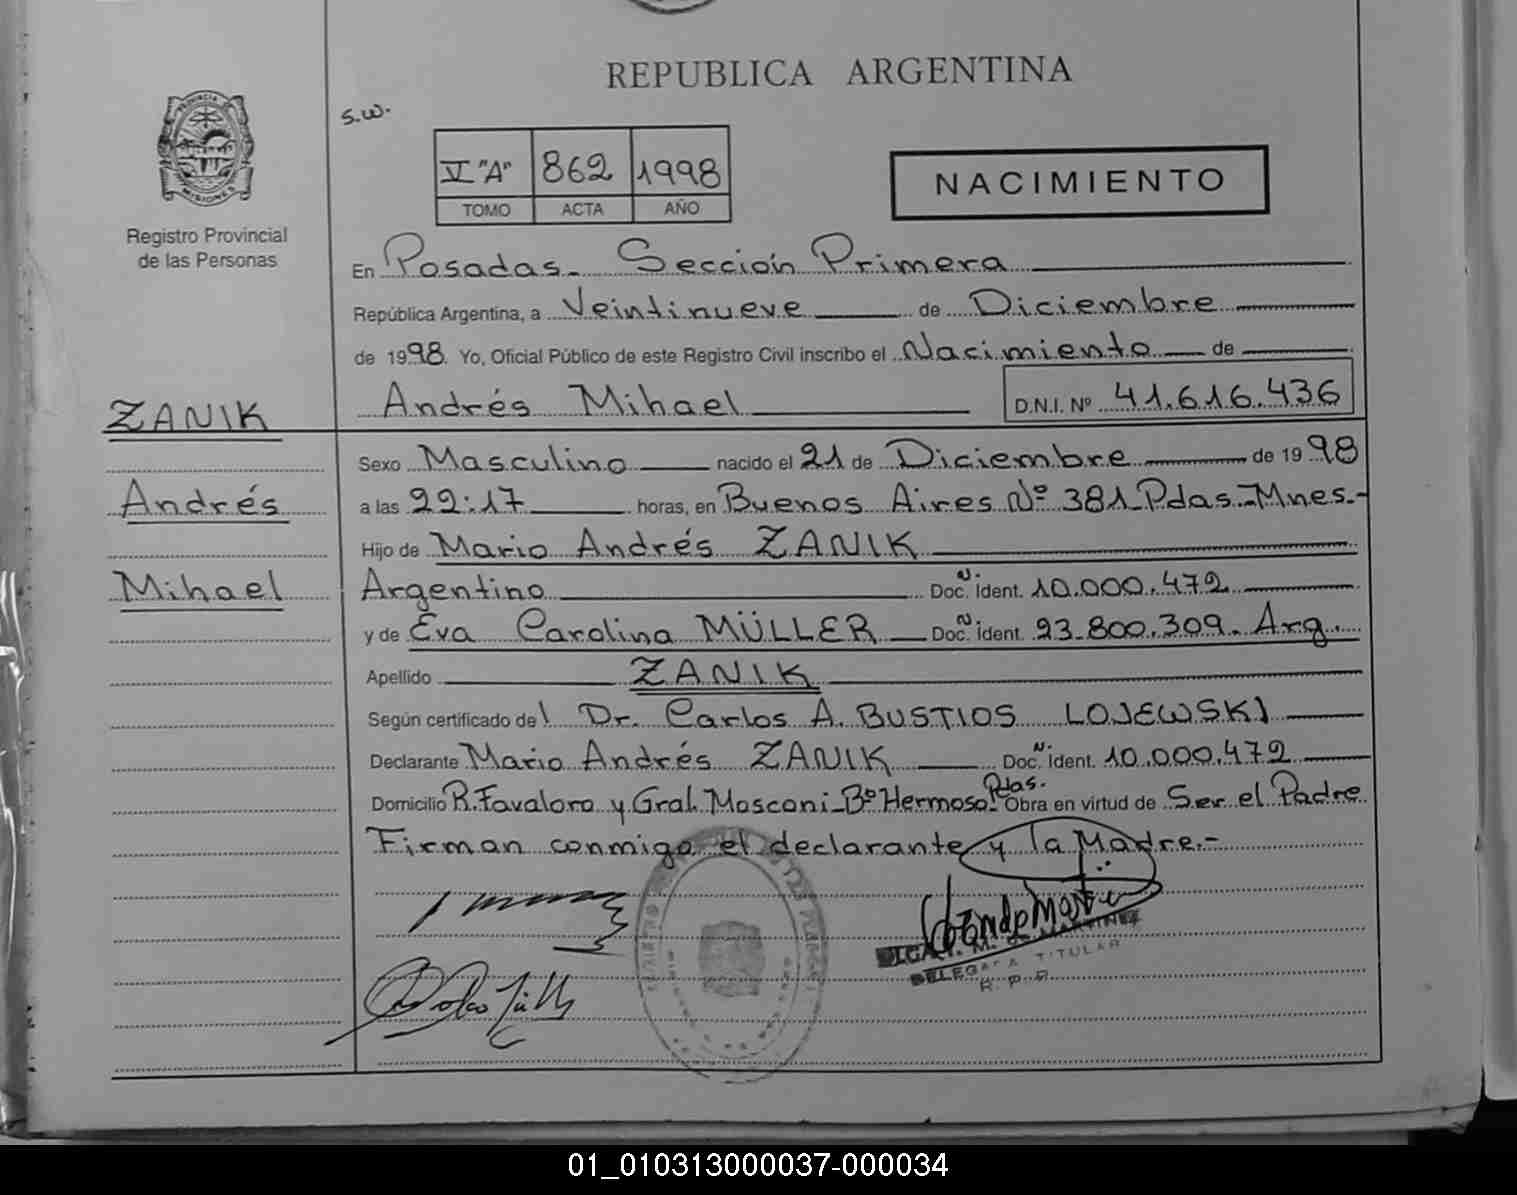 REPUBLICA ARGENTINA
s.w.
V "A" 862 1998
TOMO ACTA AÑO
NACIMIENTO
PROVINCIA DE
MISIONES
Registro Provincial
de las Personas
En Posadas.- Sección Primera
República Argentina, a Veintinueve de Diciembre
de 1998. Yo, Oficial Público de este Registro Civil inscribo el Nacimiento de
Andrés Mihael D.N.I. Nº 41.616.436
ZANIK
Andrés
Mihael
Sexo Masculino nacido el 21 de Diciembre de 1998
a las 22:17 horas, en Buenos Aires Nº 381 Pdas.-Mnes.-
Hijo de Mario Andrés ZANIK
Argentino Doc. N. Ident. 10.000.472
y de Eva Carolina MÜLLER Doc. N. Ident. 23.800.309. Arg.
Apellido ZANIK
Según certificado del Dr. Carlos A. BUSTIOS LOJEWSKI
Declarante Mario Andrés ZANIK Doc. N. Ident. 10.000.472
Domicilio R. Favaloro y Gral. Mosconi-Bº Hermoso. Pdas. Obra en virtud de Ser el Padre
Firman conmigo el declarante y la Madre.-
M. DE MARTINEZ
DELEGADA TITULAR
R. P. P.
01_010313000037-000034